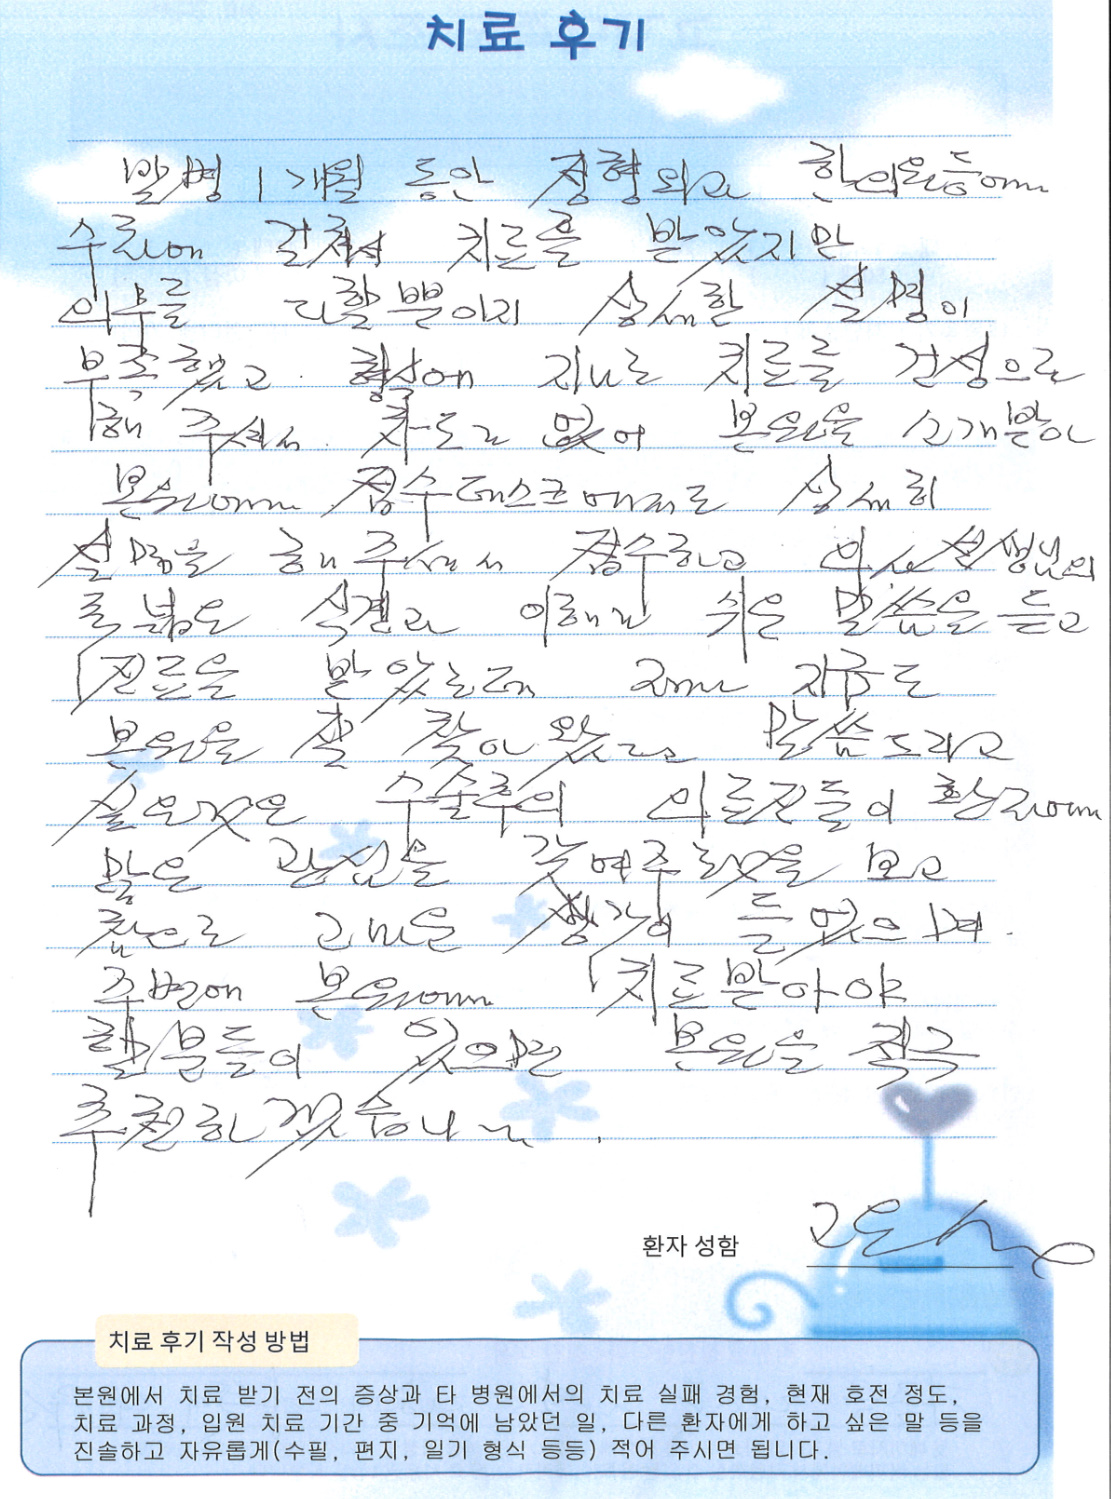 치료 후기
발병 1개월 동안 정형외과 한의원등에
수차에 걸쳐서 치료를 받았지만
의무를 다할뿐이지 상세한 설명이
부족했고 형식에 지나는 치료를 건성으로
해 주셔서 차도가 없어 본원을 소개받아
본원에서 접수데스크에서도 상세히
설명을 해 주셔서 접수하고 의사선생님의
폭넓은 식견과 이해가 쉬운 말씀을 듣고
진료를 받았는데 지금도
본원을 잘 찾아왔다고 말씀드리고
싶은것은 수술후의 의료진들이 환자에
많은 관심을 갖여주시것을 보고
참으로 고마운 생각이 들었으며.
주변에 본원에서 치료받아야
할 분들이 있으면 본원을 적극
추천하겠습니다.
환자 성함
치료 후기 작성 방법
본원에서 치료 받기 전의 증상과 타 병원에서의 치료 실패 경험, 현재 호전 정도,
치료 과정, 입원 치료 기간 중 기억에 남았던 일, 다른 환자에게 하고 싶은 말 등을
진솔하고 자유롭게(수필, 편지, 일기 형식 등등) 적어 주시면 됩니다.